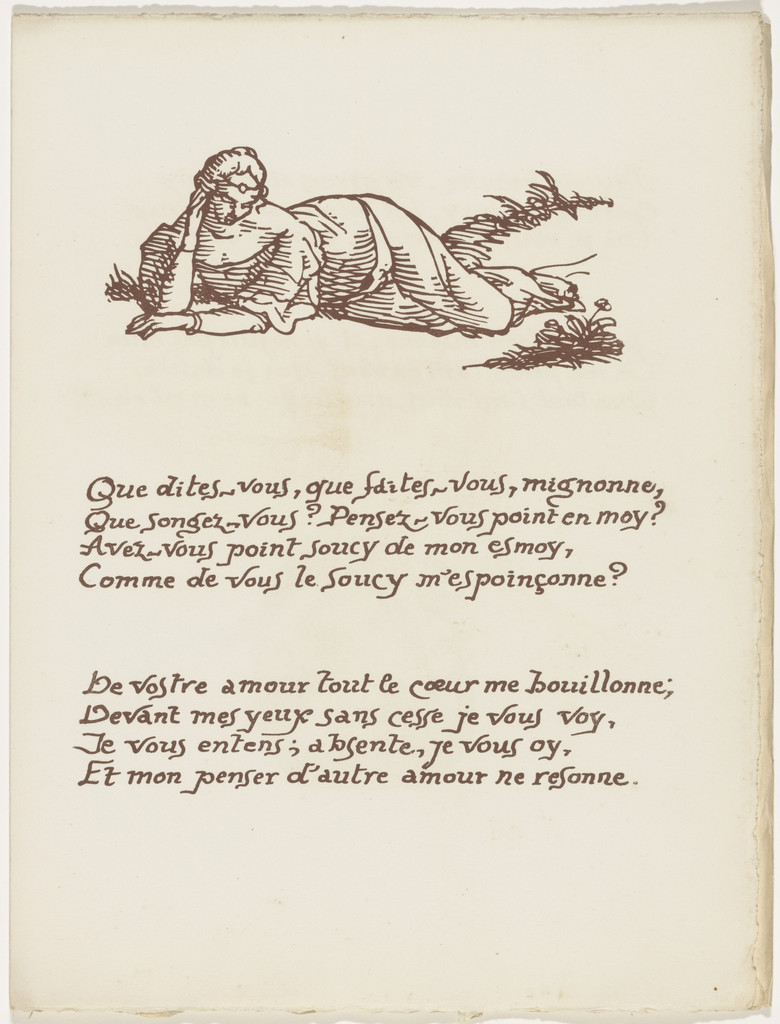 Que dites-vous, que faites-vous, mignonne,
Que songez-vous? Pensez-vous point en moy?
Avez-vous point soucy de mon esmoy,
Comme de vous le soucy m'espoinçonne?
De vostre amour tout le cœur me bouillonne;
Devant mes yeux sans cesse je vous voy,
Je vous entens; absente, je vous oy,
Et mon penser d'autre amour ne resonne.